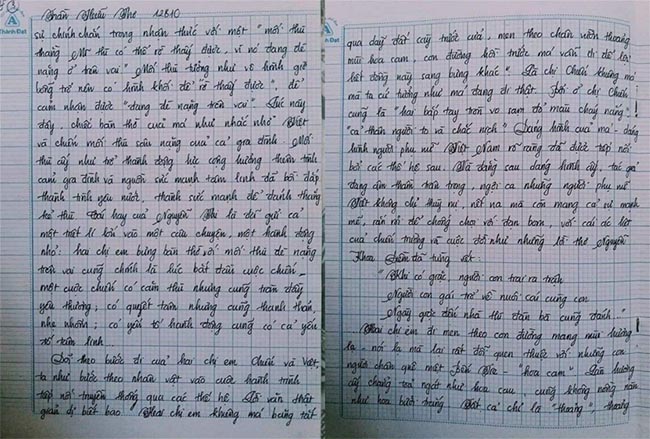 Trần Thiều Nhi 12B10
sự chín chắn trong nhận thức với một "mối thù
thằng Mỹ thì có thể rờ thấy được, vì nó đang đè
nặng ở trên vai". Mối thù tưởng như vô hình giờ
bỗng trở nên có hình khối để "rờ thấy được", để
cảm nhận được "đang đè nặng trên vai". Lúc này
đây, chiếc bàn thờ của má như nhắc nhở Việt
và Chiến mối thù sâu nặng của cả gia đình. Mối
thù ấy như trở thành động lực cộng hưởng thêm tình
cảm gia đình và nguồn sức mạnh tâm linh đã bồi đắp
thành tình yêu nước, thành sức mạnh để đánh thắng
kẻ thù. Cái hay của Nguyễn Thi là đã gửi cả
một triết lí lớn vào một câu chuyện, một hành động
nhỏ: hai chị em bưng bàn thờ với mối thù đè nặng
trên vai cũng chính là lúc bắt đầu cuộc chiến -
một cuộc chiến có căm thù nhưng cũng tràn đầy
yêu thương; có quyết tâm nhưng cũng thanh thản,
nhẹ nhõm; có yếu tố hành động cũng có cả yếu
tố tâm linh.
Dõi theo bước đi của hai chị em Chiến và Việt,
ta như bước theo nhân vật vào cuộc hành trình
tiếp nối truyền thống qua các thế hệ. Lời văn thật
giản dị biết bao. "Hai chị em khiêng má băng tắt
qua dãy đất cày trước cửa, men theo chân vườn thoảng
mùi hoa cam, con đường hồi trước má vẫn đi để lội
hết đồng này sang bưng khác". Là chị Chiến khiêng má
mà ta cứ tưởng như má đang đi thật. Bởi ở chị Chiến
cũng là "hai bắp tay tròn vo sạm đỏ màu cháy nắng",
"cả thân người to và chắc nịch". Dáng hình của má - dáng
hình người phụ nữ Việt Nam rõ ràng đã được tiếp nối
bởi các thế hệ sau. Và đằng sau dáng hình ấy, tác giả
đang âm thầm trân trọng, ngợi ca những người phụ nữ
Việt không chỉ thuỳ mị, nết na mà còn mang cả sự mạnh
mẽ, rắn rỏi để chống chọi với đạn bom, với cái ác liệt
của chiến trường và cuộc đời như những lời thơ Nguyễn
Khoa Điềm đã từng viết:
"Khi có giặc người con trai ra trận
Người con gái trở về nuôi cái cùng con
Ngày giặc đến nhà thì đàn bà cũng đánh..."
Hai chị em đi men theo con đường mang mùi hương
lạ - nói lạ mà lại rất đỗi quen thuộc với những con
người chân quê một Bến Tre - "hoa cam". Làn hương
ấy chẳng toả ngát như hoa cau cũng không nồng nàn
như hoa bưởi trắng. Tất cả chỉ là "thoảng", thoảng